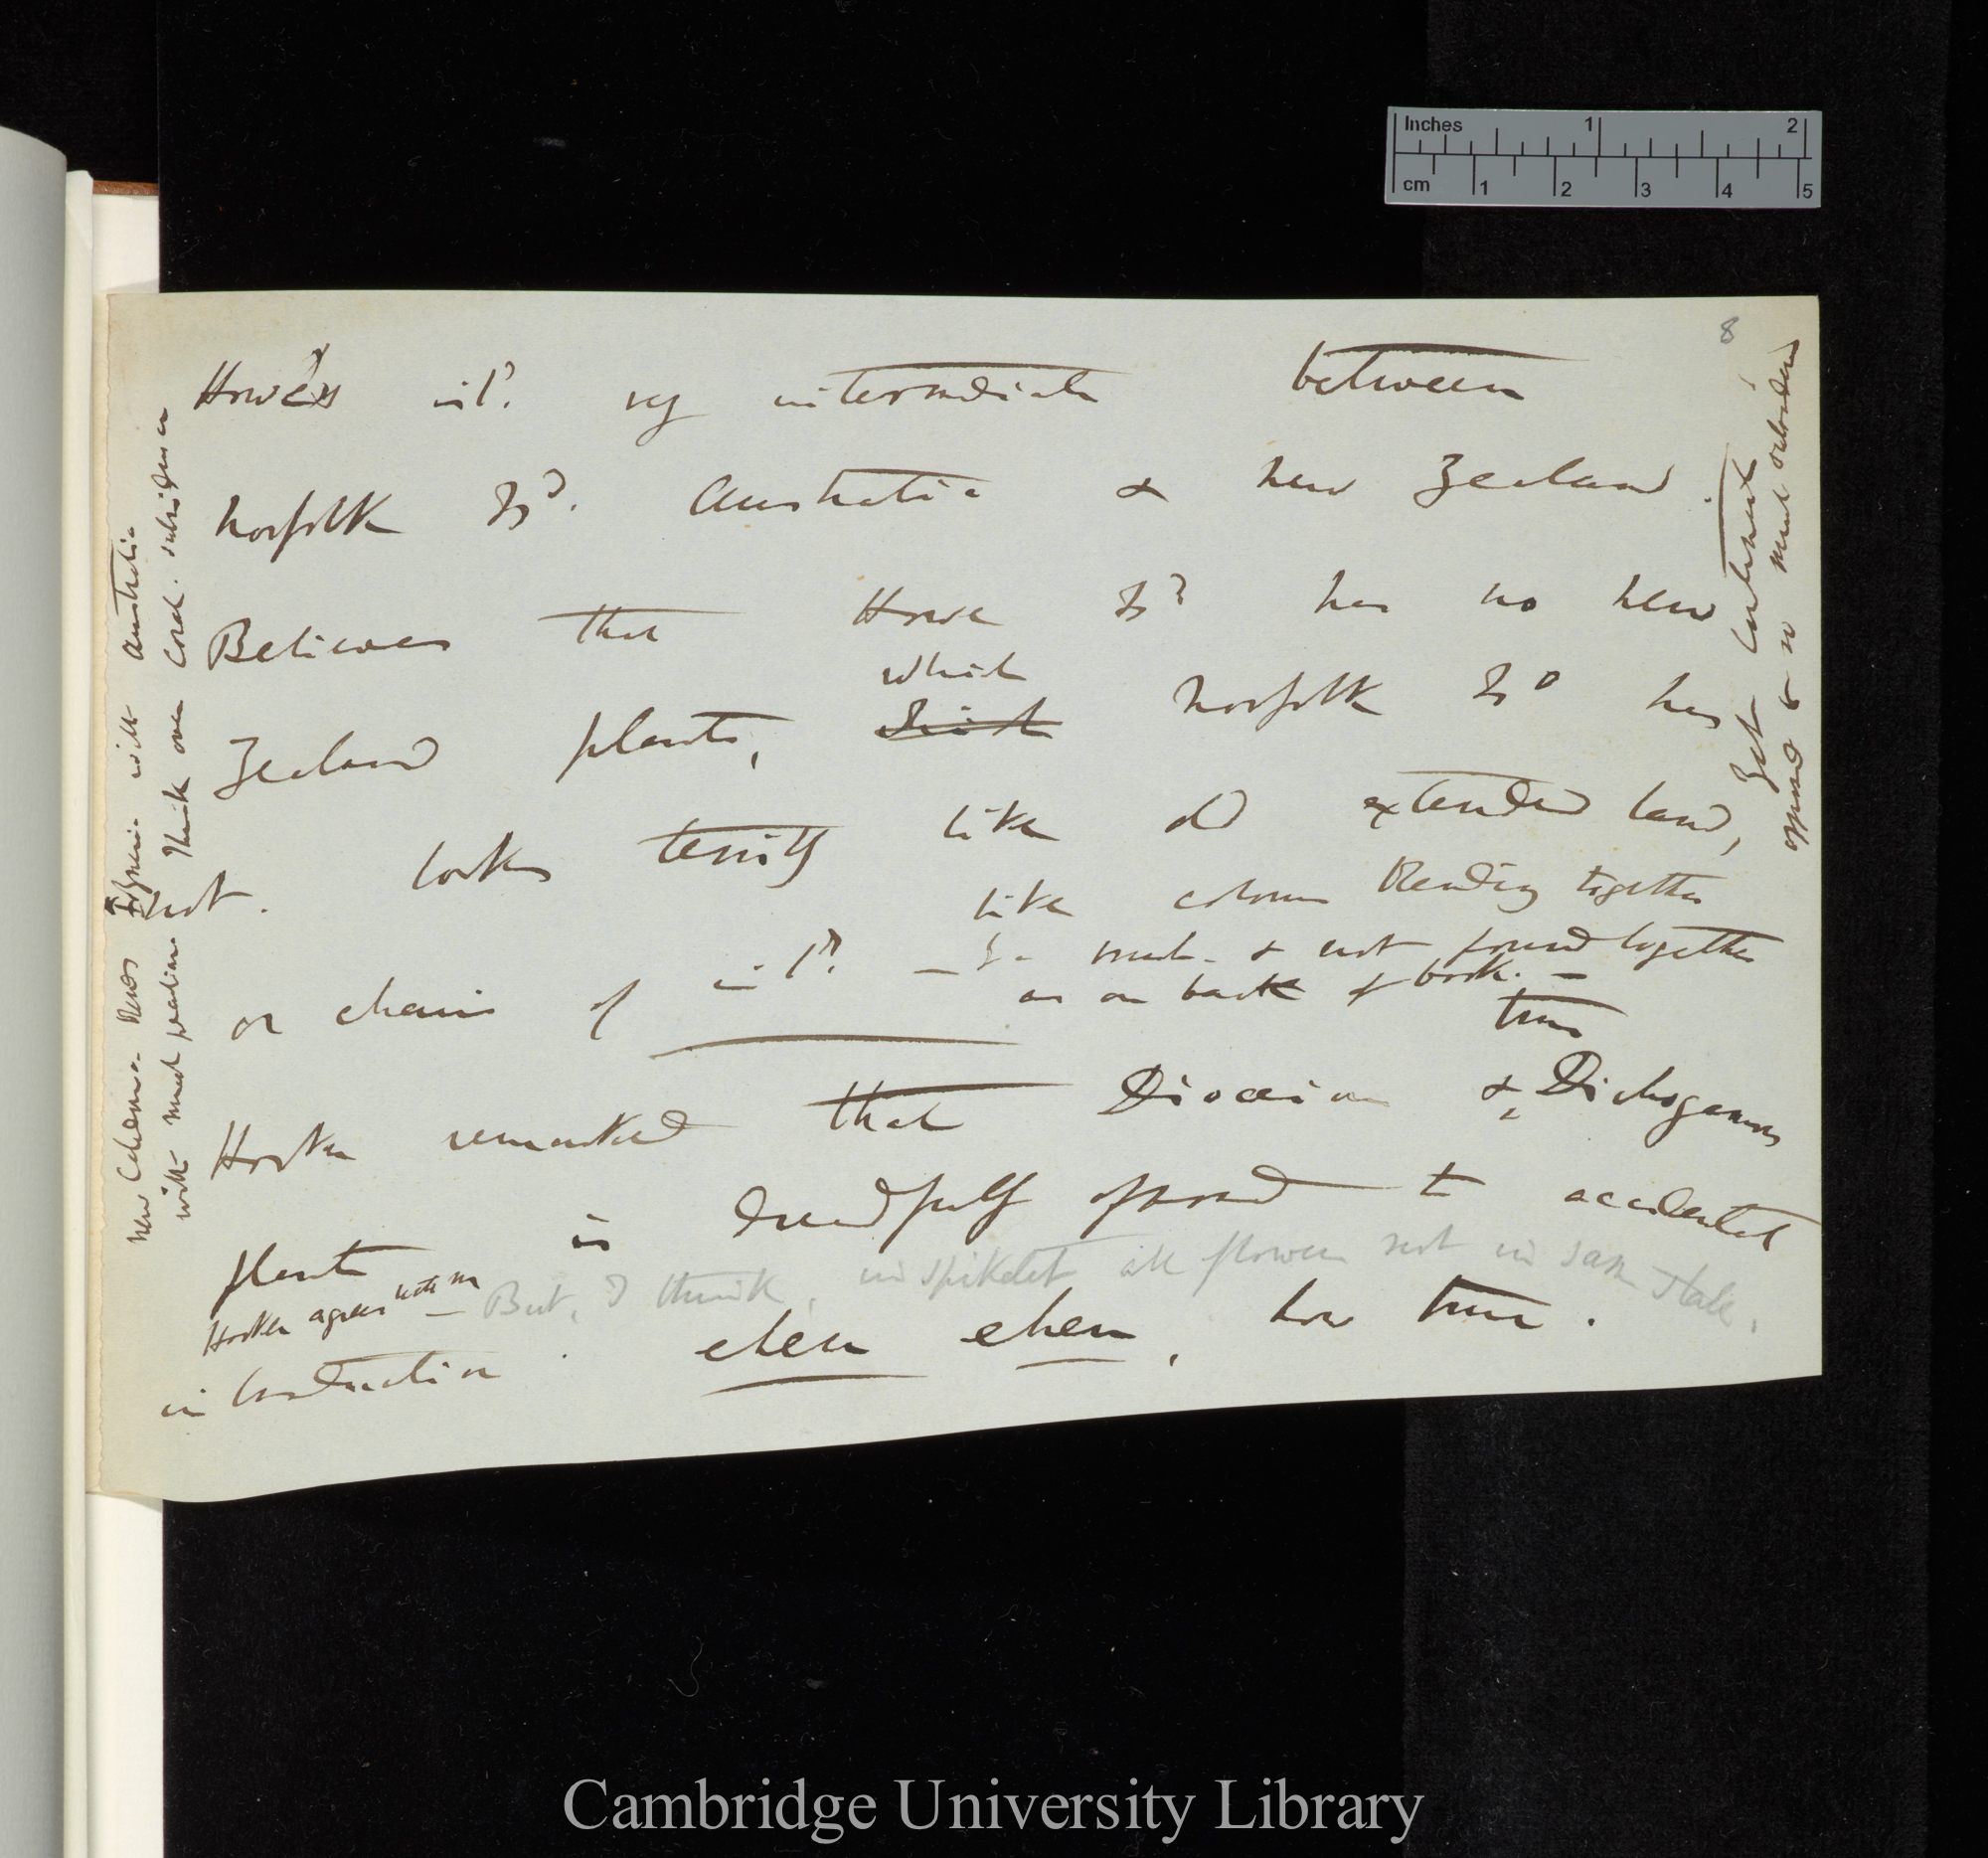 8
Howe's isld. very intermediate between
Norfolk Isd. Australia & New Zealand.
Believes that Howe Isd has no New
Zealand plants, which Norfolk Isd has
not. looks terribly like old extended land,
like colours blending together
or chain of isld. — & not found together
as on back of book. —
true
Hooker remarked that Dioecious & Dichogamous
plants is dreadfully opposed to accidental
Hooker agrees with me — But, I think, in spikelet all flowers not in same state.
in Introduction. ehem ehem, how true.
New Caledonia with Australia
with much peculiar. Think over coral. subsidence
Yet continent
opposed to so much subsidence
Inches 1 2
cm 1 2 3 4 5
Cambridge University Library